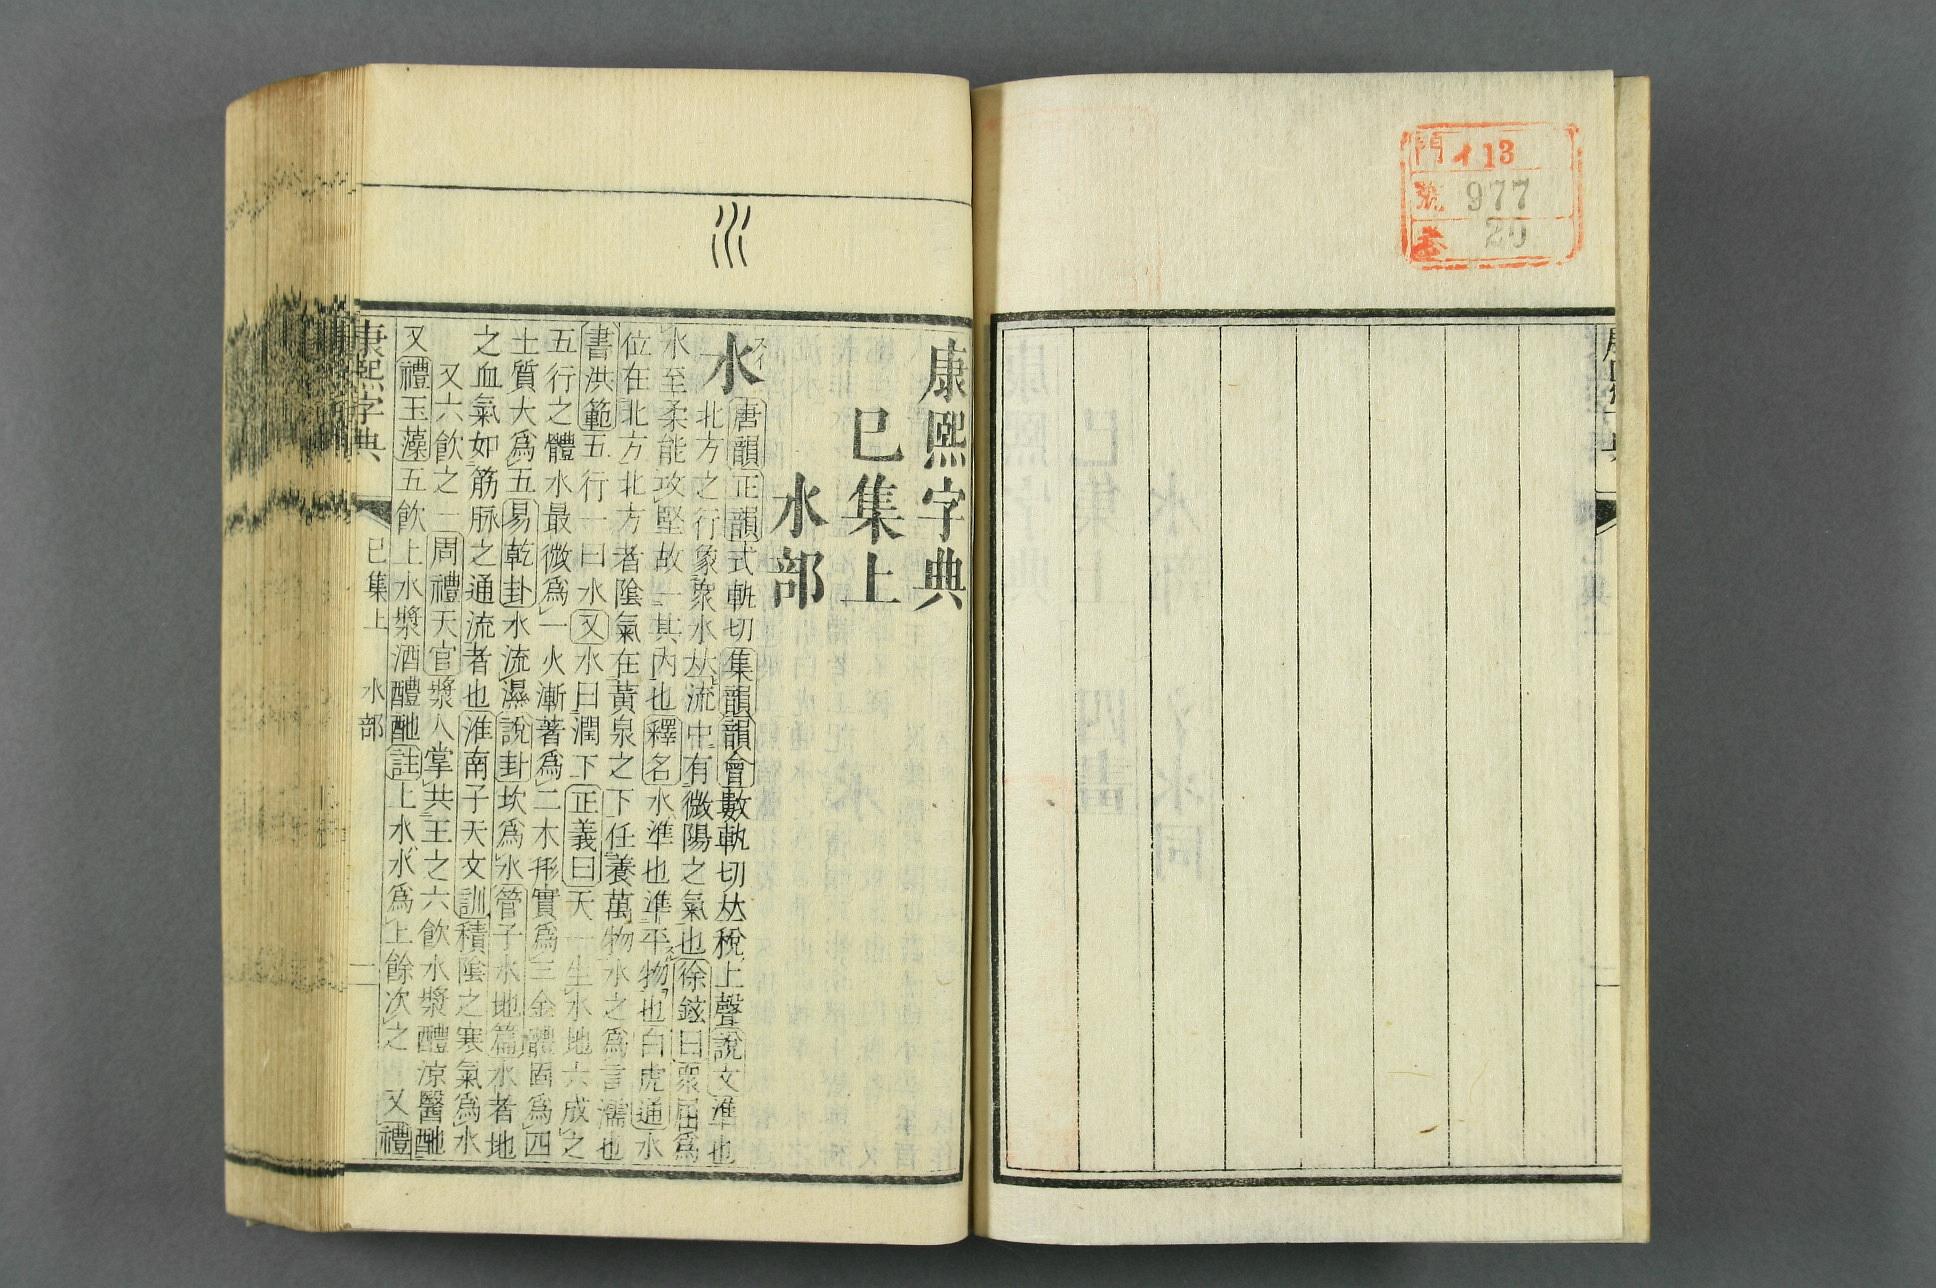 門 イ 13
號 977
卷 20
康熙字典
巳集上
水部
水
スイ
唐韻正韻式軌切集韻韻會數軌切𠀤稅上聲說文準也
北方之行象衆水𠀤流中有微陽之氣也徐鉉曰衆屈爲
水至柔能攻堅故一其內也釋名水準也準平物也白虎通水
位在北方北方者隂氣在黃泉之下任養萬物水之爲言濡也
書洪範五行一曰水又水曰潤下正義曰天一生水地六成之
五行之體水最微爲一火漸著爲二木形實爲三金體固爲四
土質大爲五易乾卦水流濕說卦坎爲水管子水地篇水者地
之血氣如筋脉之通流者也淮南子天文訓積隂之寒氣爲水
又六飮之一周禮天官漿人掌共王之六飮水漿醴涼醫酏
又禮玉藻五飮上水漿酒醴酏註上水水爲上餘次之 又禮
康熙字典
巳集上 水部
一